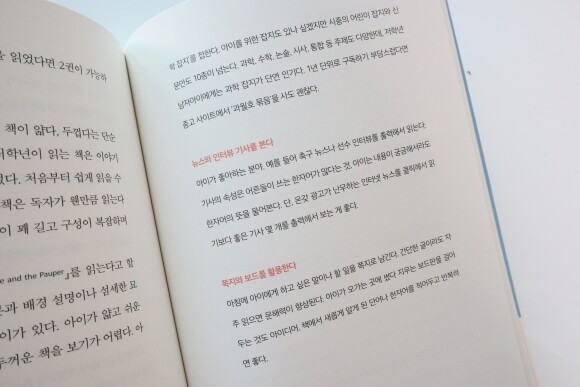 를 읽었다면 2권이 가능하
책이 얇다, 두껍다는 단순
저학년이 읽는 책은 이야기
었다. 처음부터 쉽게 읽을 수
책은 독자가 웬만큼 읽는다
이 꽤 길고 구성이 복잡하며
e and the Pauper』를 읽는다고 할
과 배경 설명이나 섬세한 묘
이가 있다. 아이가 얇고 쉬운
두꺼운 책을 보기가 어렵다. 아
학 잡지'를 접한다. 아이를 위한 잡지도 있나 싶겠지만 시중의 어린이 잡지와 신
문만도 10종이 넘는다. 과학, 수학, 논술, 시사, 통합 등 주제도 다양한데, 저학년
남자아이에게는 과학 잡지가 단연 인기다. 1년 단위로 구독하기 부담스럽다면
중고 사이트에서 '과월호 묶음'을 사도 괜찮다.
뉴스와 인터뷰 기사를 본다
아이가 좋아하는 분야, 예를 들어 축구 뉴스나 선수 인터뷰를 출력해서 읽는다.
기사의 속성은 어른들이 쓰는 한자어가 많다는 것. 아이는 내용이 궁금해서라도
한자어의 뜻을 물어본다. 단, 온갖 광고가 난무하는 인터넷 뉴스를 클릭해서 읽
기보다 좋은 기사 몇 개를 출력해서 보는 게 좋다.
쪽지와 보드를 활용한다
아침에 아이에게 하고 싶은 말이나 할 일을 쪽지로 남긴다. 간단한 글이라도 자
주 읽으면 문해력이 향상된다. 아이가 오가는 곳에 썼다 지우는 보드판을 걸어
두는 것도 아이디어. 책에서 새롭게 알게 된 단어나 한자어를 적어두고 반복하
면 좋다.